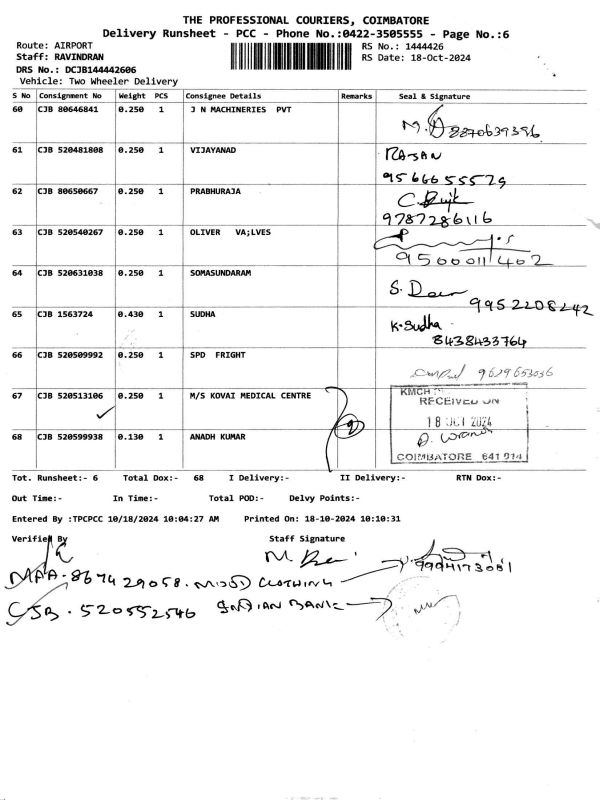 THE PROFESSIONAL COURIERS, COIMBATORE
Delivery Runsheet - PCC - Phone No.:0422-3505555 - Page No.:6
Route: AIRPORT RS No.: 1444426
Staff: RAVINDRAN RS Date: 18-Oct-2024
DRS No.: DCJB144442606
Vehicle: Two Wheeler Delivery
S No Consignment No Weight PCS Consignee Details Remarks Seal & Signature
60 CJB 80646841 0.250 1 J N MACHINERIES PVT
M. 8870639396
61 CJB 520481808 0.250 1 VIJAYANAD RAJAN
9566655529
62 CJB 80650667 0.250 1 PRABHURAJA C.
9787286116
63 CJB 520540267 0.250 1 OLIVER VA;LVES
9500011402
64 CJB 520631038 0.250 1 SOMASUNDARAM S.
9952208242
65 CJB 1563724 0.430 1 SUDHA K. Sudha
8438433764
66 CJB 520509992 0.250 1 SPD FRIGHT 9629653036
67 CJB 520513106 0.250 1 M/S KOVAI MEDICAL CENTRE KMCH
RECEIVED ON
18 OCT 2024
68 CJB 520599938 0.130 1 ANADH KUMAR
COIMBATORE 641 014
Tot. Runsheet:- 6 Total Dox:- 68 I Delivery:- II Delivery:- RTN Dox:-
Out Time:- In Time:- Total POD:- Delvy Points:-
Entered By :TPCPCC 10/18/2024 10:04:27 AM Printed On: 18-10-2024 10:10:31
Verified By Staff Signature
M.
MAA. 867429058. CLOTHING 9994173081
CJB. 520552546 INDIAN BANK